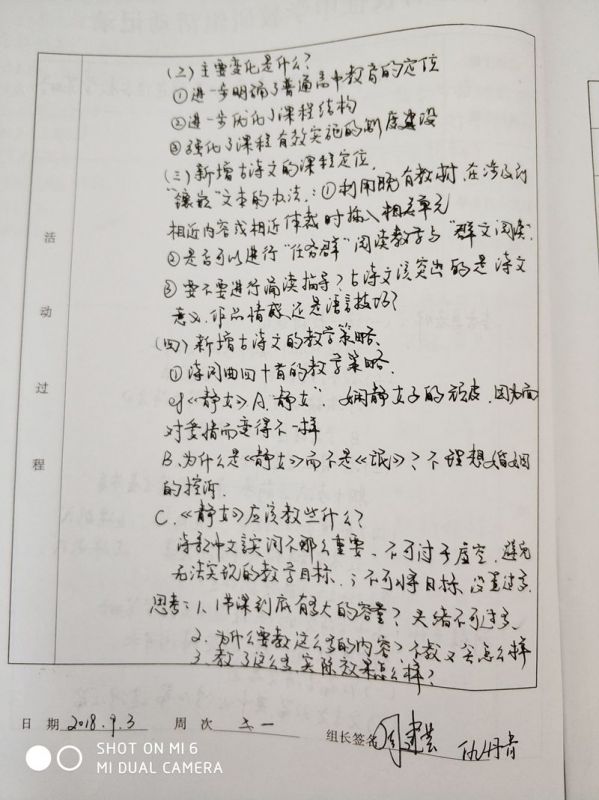 (二)主要变化是什么?
①进一步明确了普通高中教育的定位
②进一步优化了课程结构
③强化了课程有效实施的制度建设
(三)新增古诗文的课程定位
"镶嵌"文本的办法:①利用既有教材,在涉及到
相近内容或相近体裁时插入相应单元
②是否可以进行"任务群"阅读教学与"群文阅读"
③要不要进行诵读指导?古诗文该突出的是诗文
意义、作品情感还是语言技巧?
(四)新增古诗文的教学策略
①诗词曲四十首的教学策略
《静女》A."静女" 娴静女子的 因为面
对爱情而变得不一样
B.为什么是《静女》而不是《氓》?不理想婚姻
的控诉.
C.《静女》应该教些什么?
诗歌中文该实词不那么重要、不可过于虚空,避免
无法实现的教学目标,;不可将目标设置过多
思考:1.1节课到底有多大的容量?头绪不可过多
2.为什么要教这么多的内容?不教又会怎么样
3.教了这么多,实际效果怎么样?
活
动
过
程
日 期 2018.9.3 周 次 一 组长签名
SHOT ON MI 6
MI DUAL CAMERA